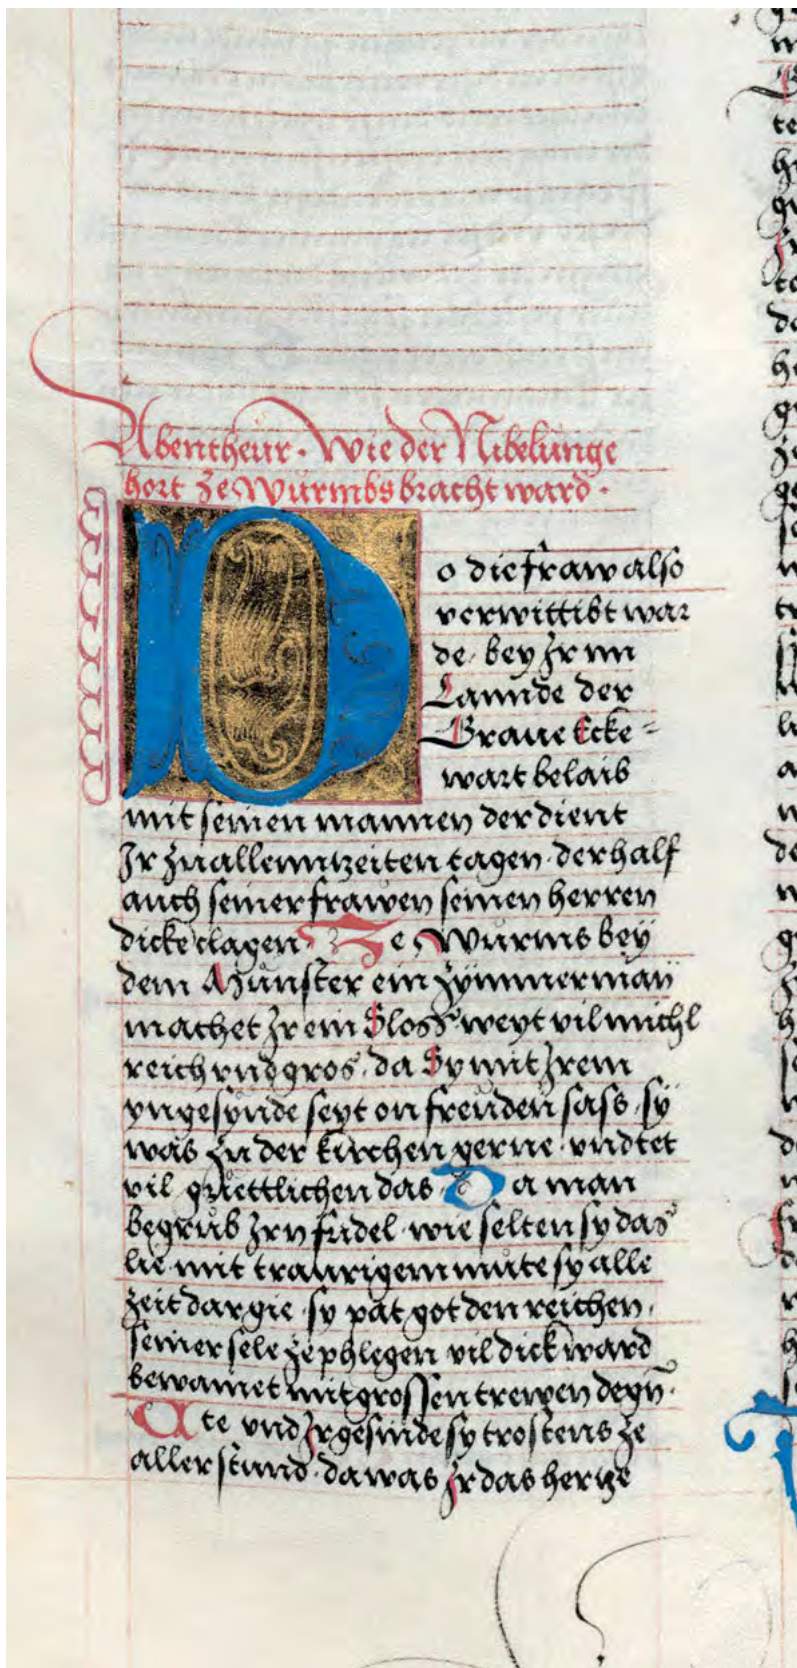 Abentheur · Wie der Nibelunge
hort ze Wurmbs bracht ward ·
Do die fraw also
verwittibt war
de · bey Jr im
Lannde der
Graue Ecke-
wart belaib
mit seinen mannen der dient
Jr zu allenntzeiten tagen · der half
auch seiner frawen seinen herren
dicke clagen · Ze Wŭrms bey
dem Mŭnster ein zymmerman
machet Jr ein Sloss weyt vil michl
reich vnd gros · da Sy mit Jrem
yngesynde seyt on freŭden sass · sy
was zu der kirchen gerne · vnd tet
vil gŭettlichen das · Da man
begrŭb Jrn fridel · wie selten sy das
lie · mit traurigem mŭte sy alle
zeit dar gie · sy pat got den reichen ·
seiner sele ze phlegen vil dick ward
bewainet mit grossen trewen degn̄ ·
Ute vnd Jr gesinde sy trostens ze
aller stund · da was Jr das hertze